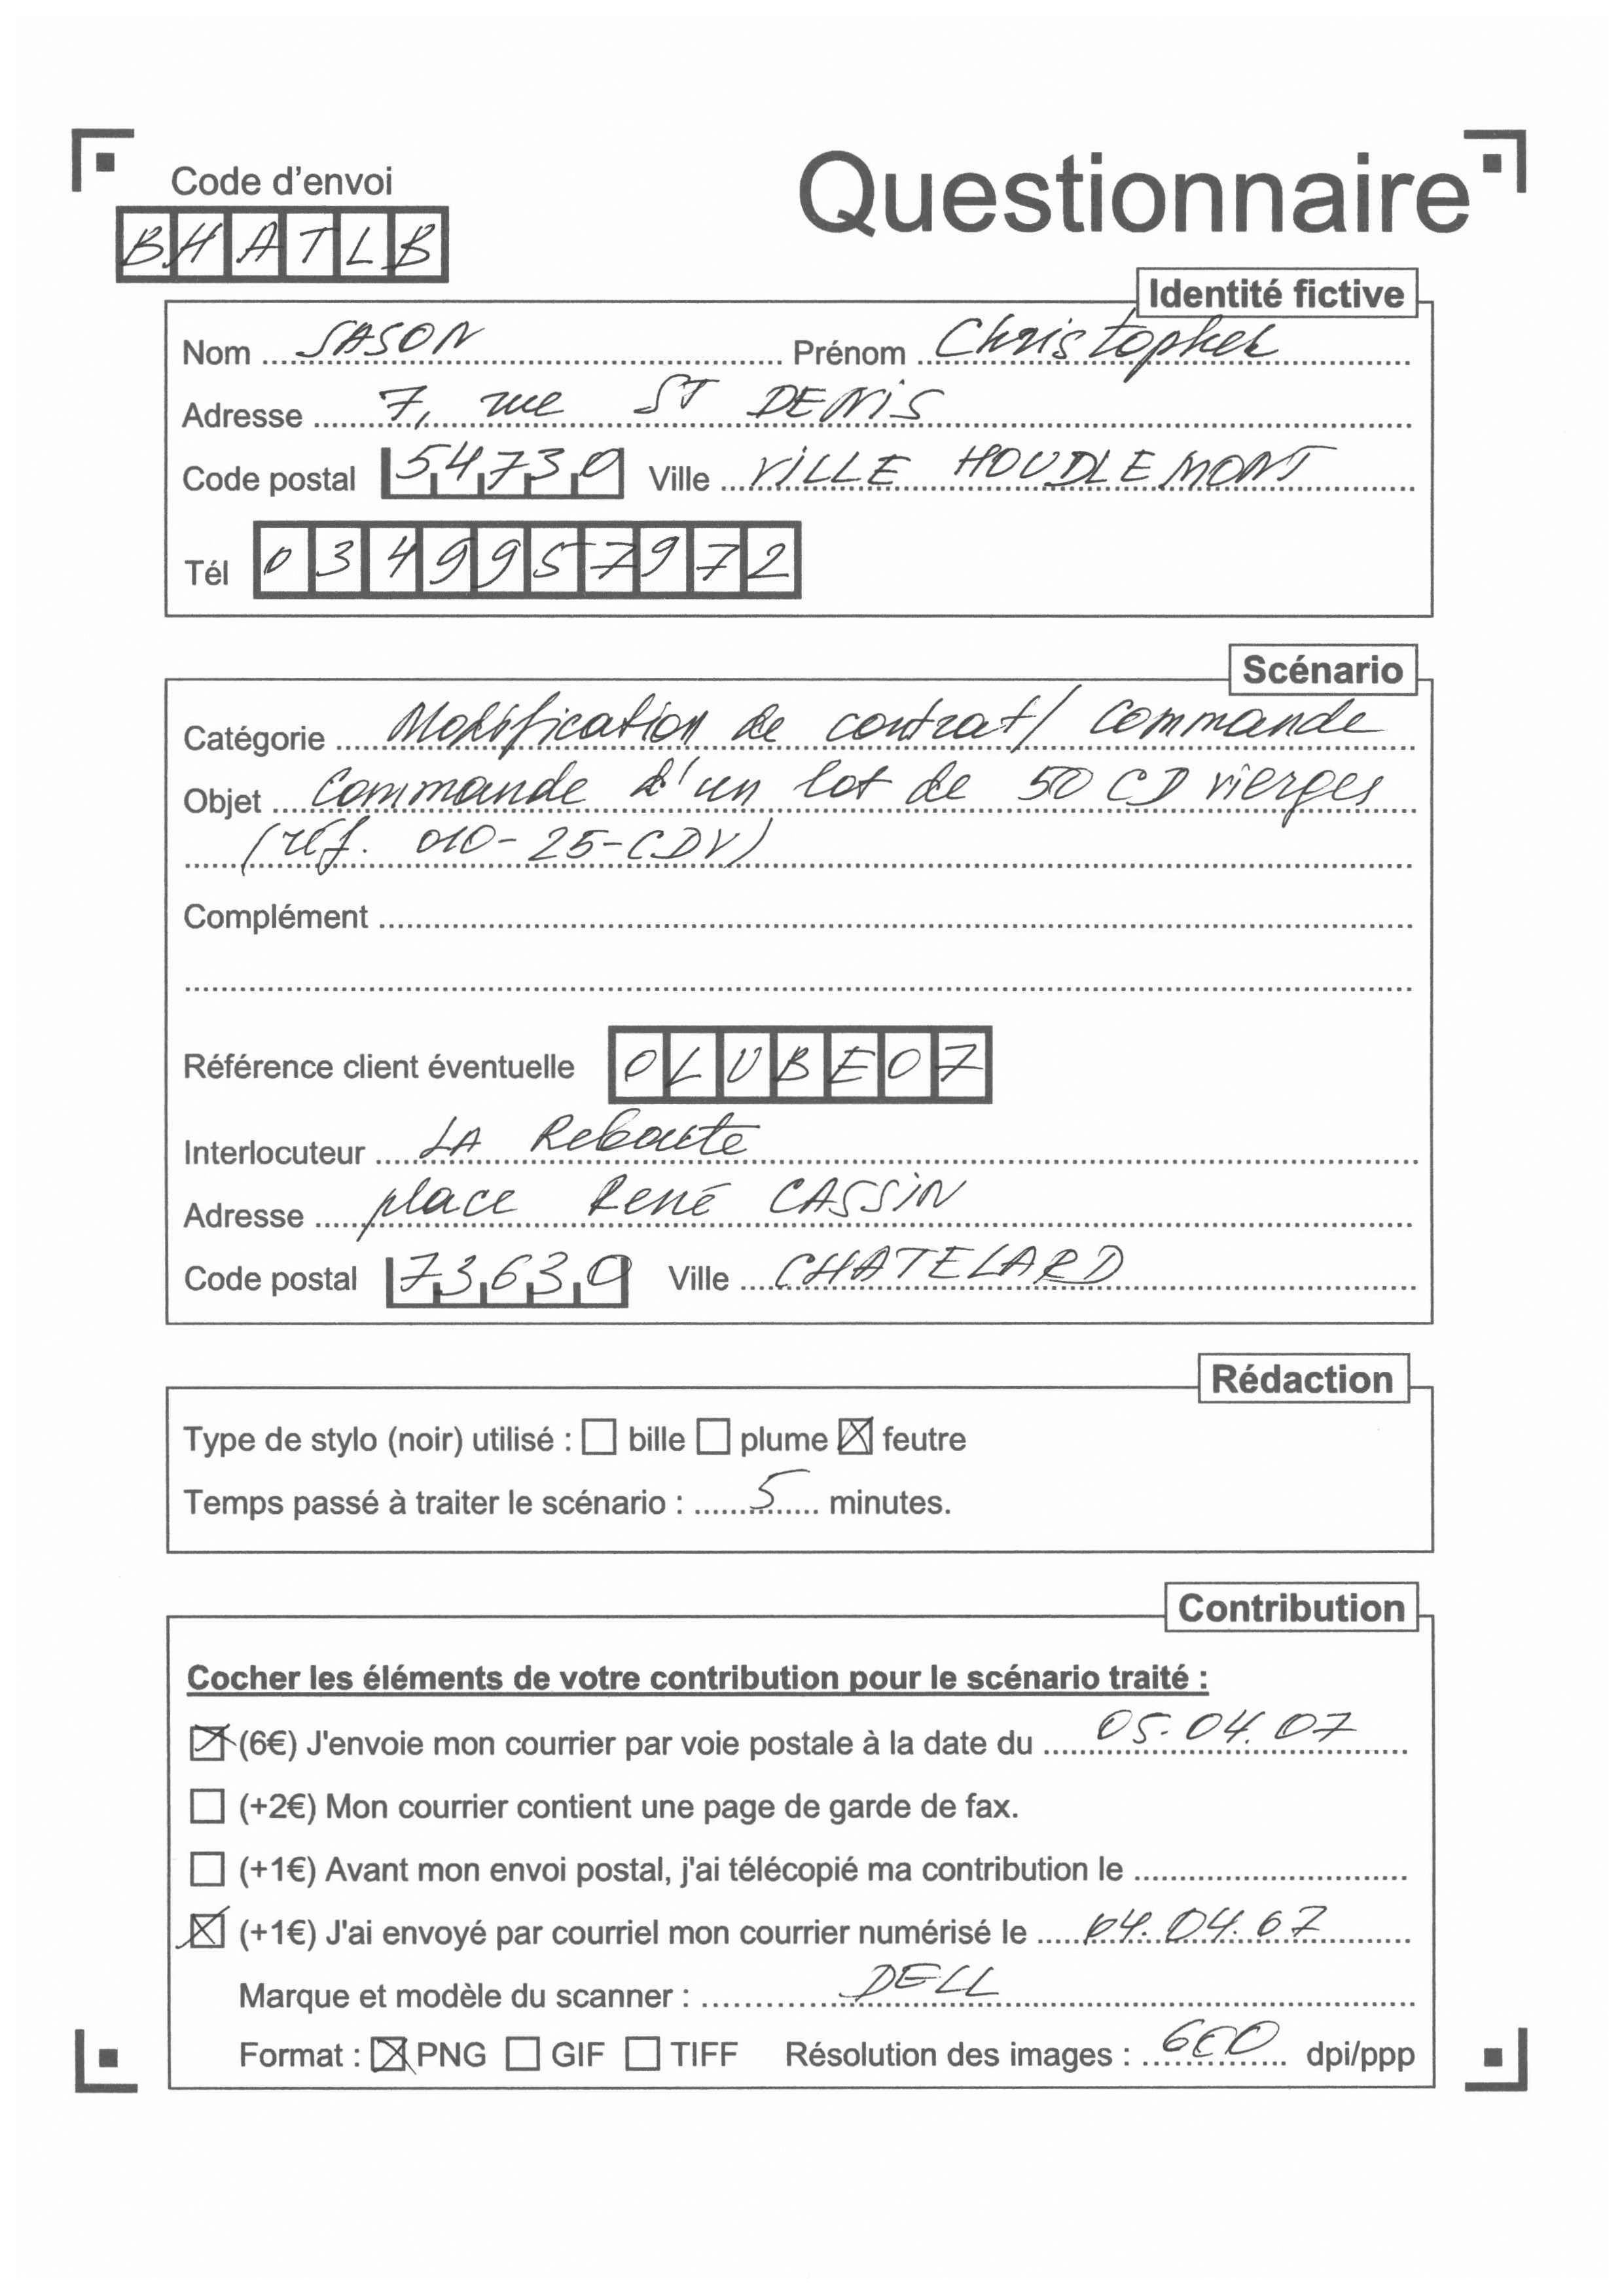 Code d'envoi
Questionnaire
BHATLB
Identité fictive
Nom SASON Prénom Christopher
Adresse 7, rue ST DENIS
Code postal 54730 Ville VILLE HOUDLEMONT
Tél 0349957972
Scénario
Catégorie Modification de contrat/ commande
Objet Commande d'un lot de 50 CD vierges
(réf. 010-25-CDV)
Complément
Référence client éventuelle OLUBE07
Interlocuteur LA Reboute
Adresse place René CASSIN
Code postal 73630 Ville CHATELARD
Rédaction
Type de stylo (noir) utilisé : ☐ bille ☐ plume ☒ feutre
Temps passé à traiter le scénario : 5 minutes.
Contribution
Cocher les éléments de votre contribution pour le scénario traité :
☒ (6€) J'envoie mon courrier par voie postale à la date du 05.04.07
☐ (+2€) Mon courrier contient une page de garde de fax.
☐ (+1€) Avant mon envoi postal, j'ai télécopié ma contribution le
☒ (+1€) J'ai envoyé par courriel mon courrier numérisé le 04.04.07
Marque et modèle du scanner : DELL
Format : ☒ PNG ☐ GIF ☐ TIFF Résolution des images : 600 dpi/ppp